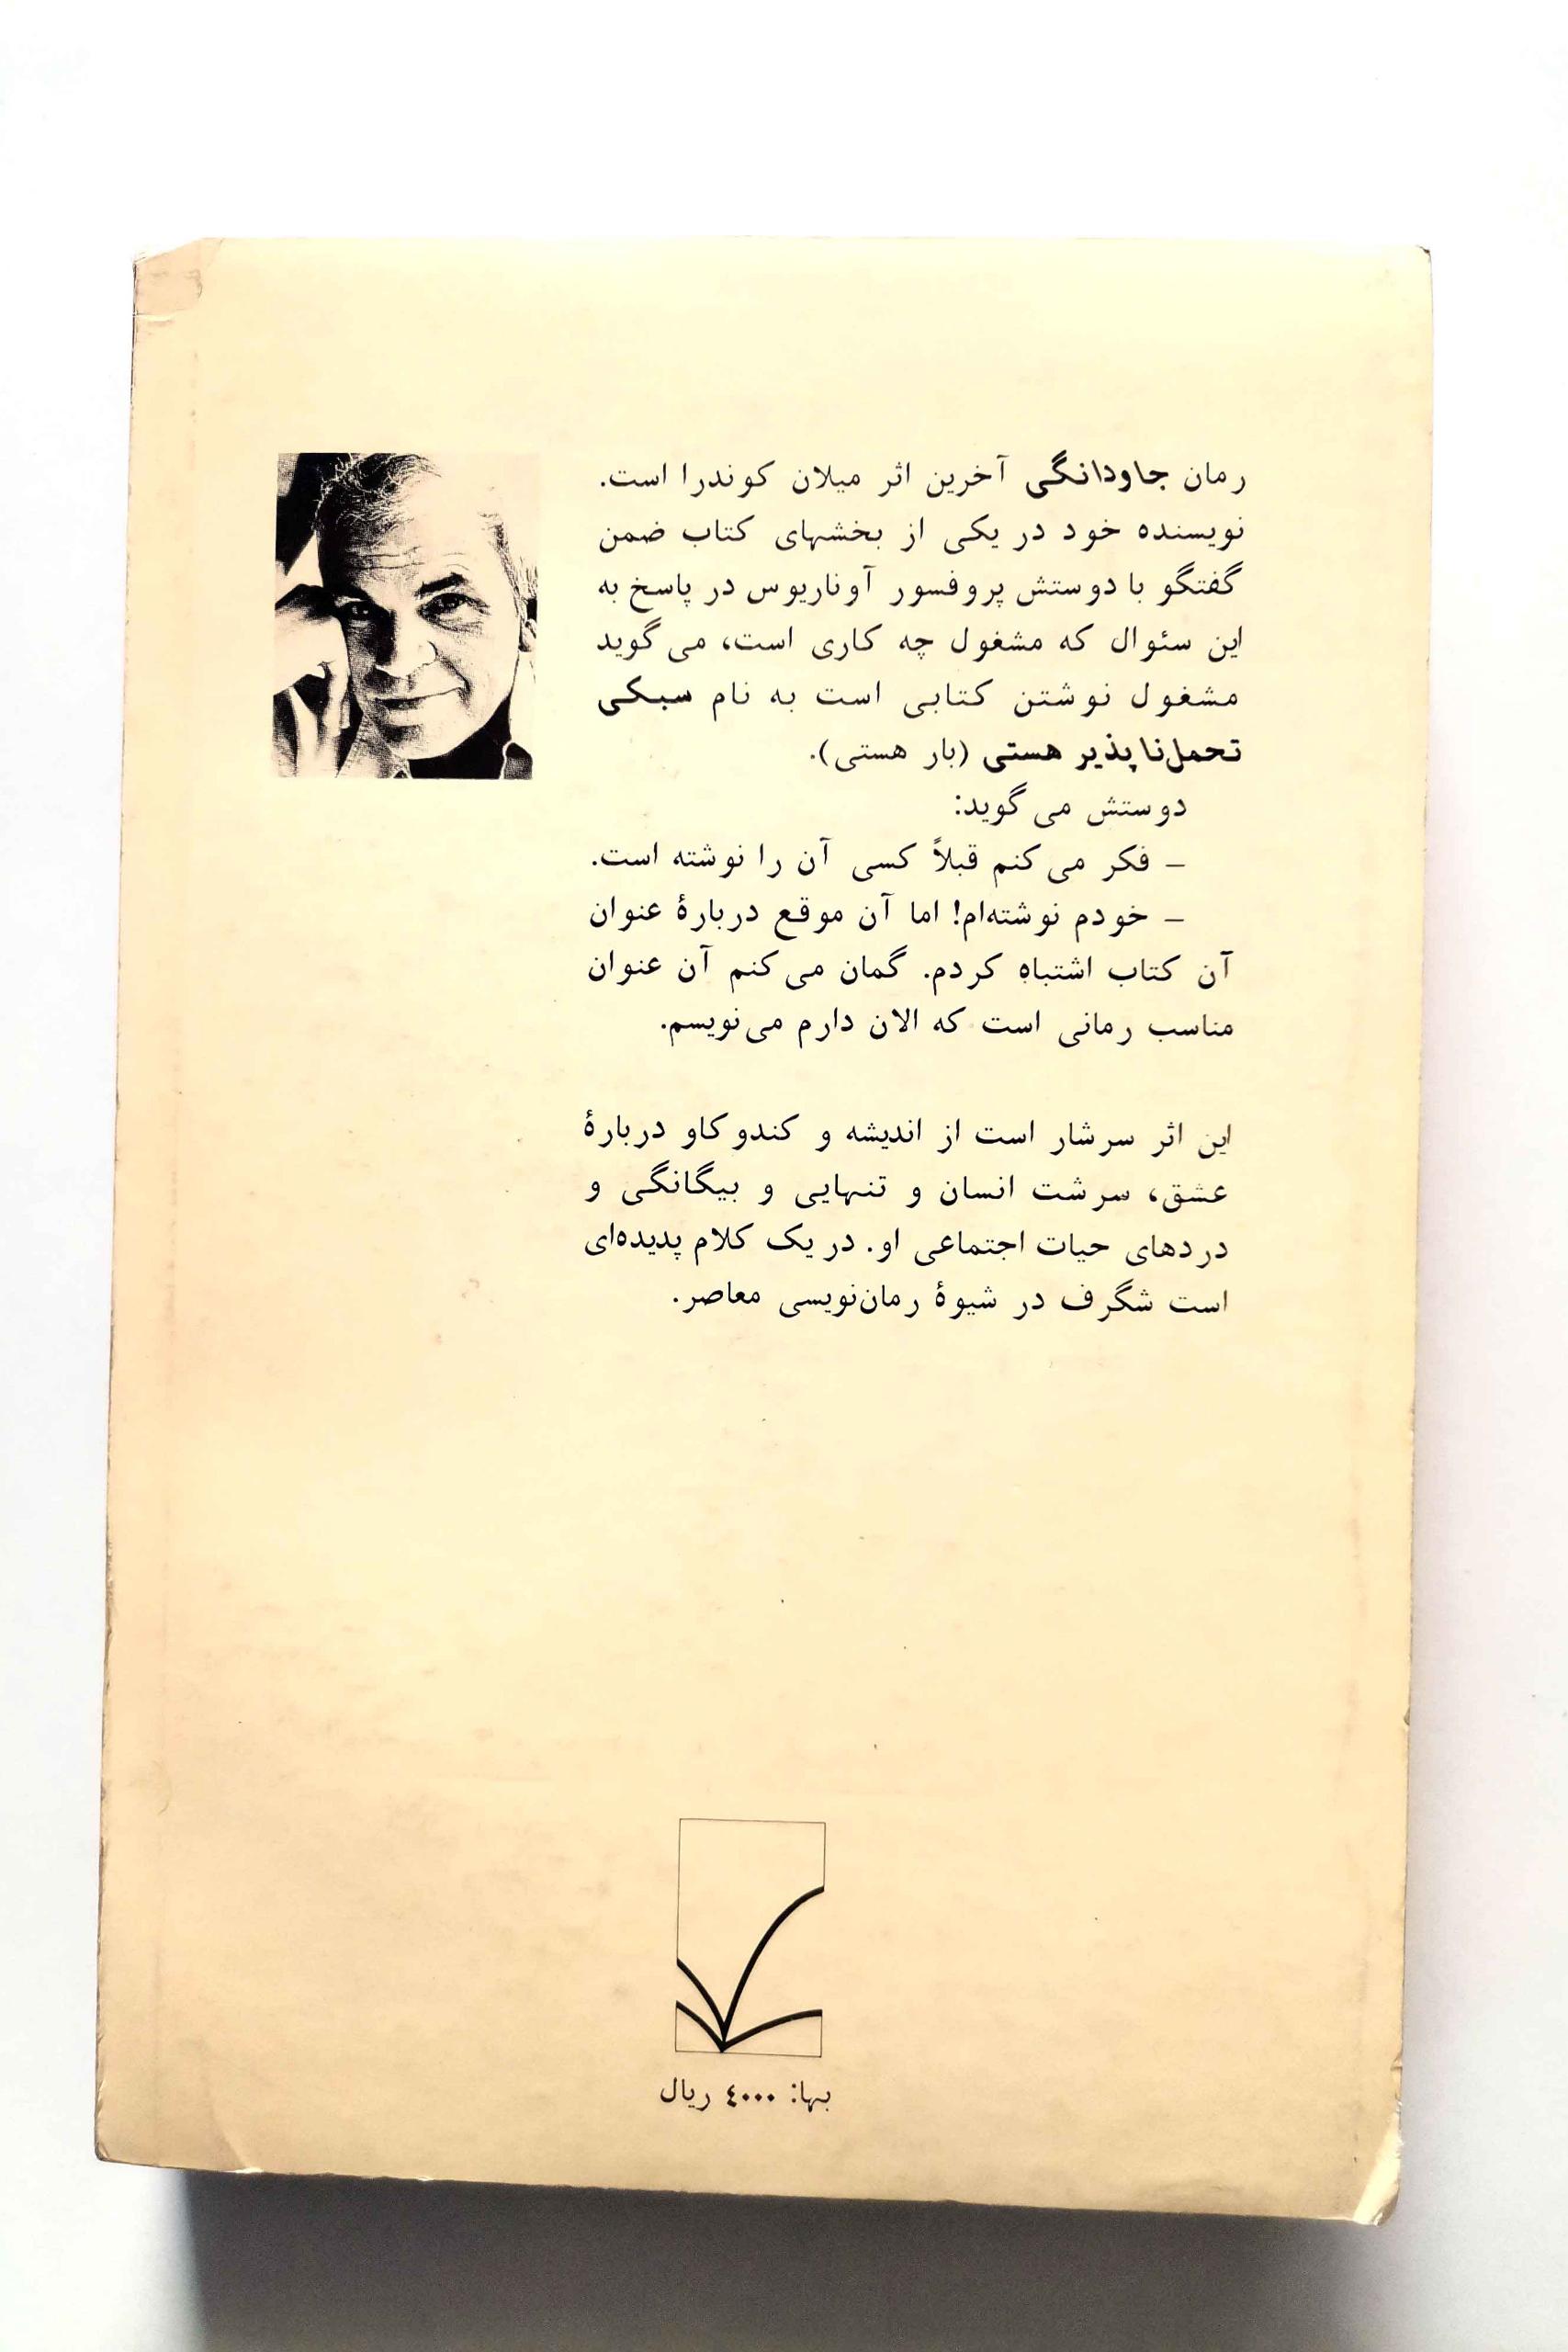 رمان جاودانگی آخرین اثر میلان کوندرا است.
نویسنده خود در یکی از بخشهای کتاب ضمن
گفتگو با دوستش پروفسور آوناریوس در پاسخ به
این سئوال که مشغول چه کاری است، می‌گوید
مشغول نوشتن کتابی است به نام سبکی
تحمل‌ناپذیر هستی (بار هستی).
دوستش می‌گوید:
– فکر می‌کنم قبلاً کسی آن را نوشته است.
– خودم نوشته‌ام! اما آن موقع دربارهٔ عنوان
آن کتاب اشتباه کردم. گمان می‌کنم آن عنوان
مناسب رمانی است که الان دارم می‌نویسم.
این اثر سرشار است از اندیشه و کندوکاو دربارهٔ
عشق، سرشت انسان و تنهایی و بیگانگی و
دردهای حیات اجتماعی او. در یک کلام پدیده‌ای
است شگرف در شیوهٔ رمان‌نویسی معاصر.
بها: ٤٠٠٠ ریال